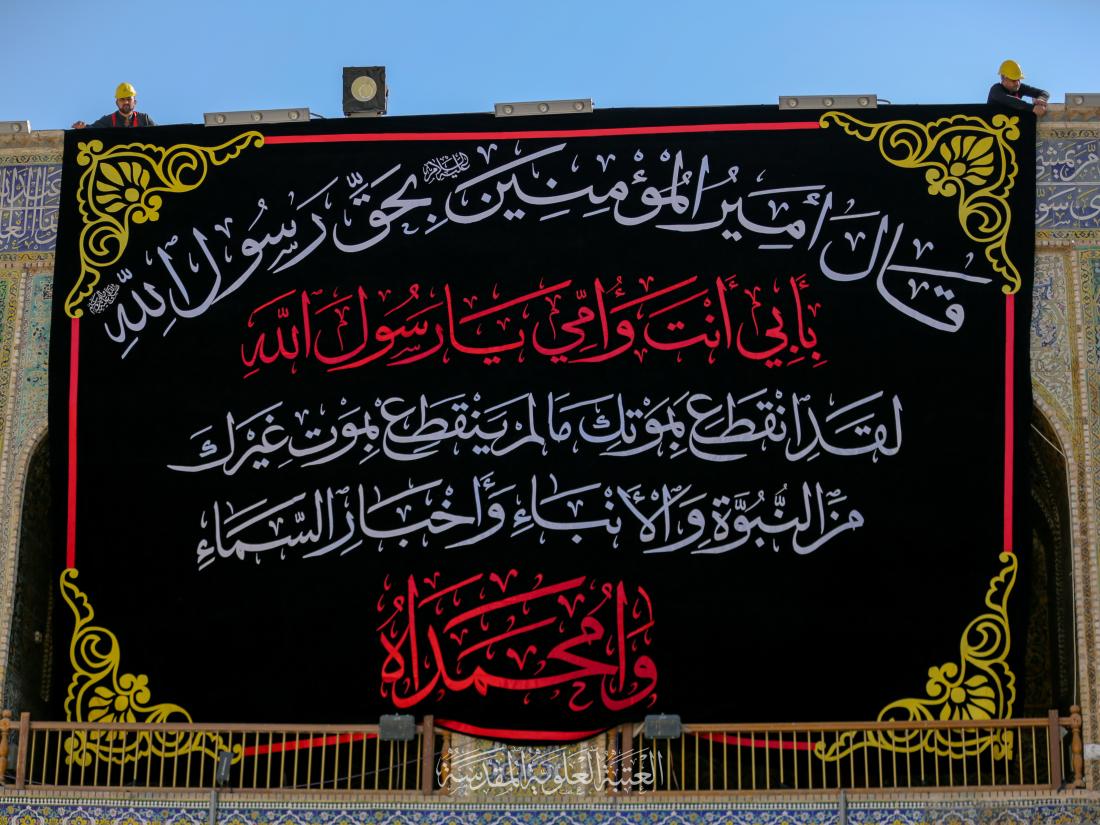 قَالَ أَمِيرُ الْمُؤْمِنِينَ عليه السلام بِحَقِّ رَسُولِ اللهِ
بِأَبِي أَنْتَ وَأُمِّي يَا رَسُولَ اللهِ
لَقَدِ انْقَطَعَ بِمَوْتِكَ مَا لَمْ يَنْقَطِعْ بِمَوْتِ غَيْرِكَ
مِنَ النُّبُوَّةِ وَالْأَنْبَاءِ وَأَخْبَارِ السَّمَاءِ
وَامُحَمَّدَاهُ
العتبة العلوية المقدسة